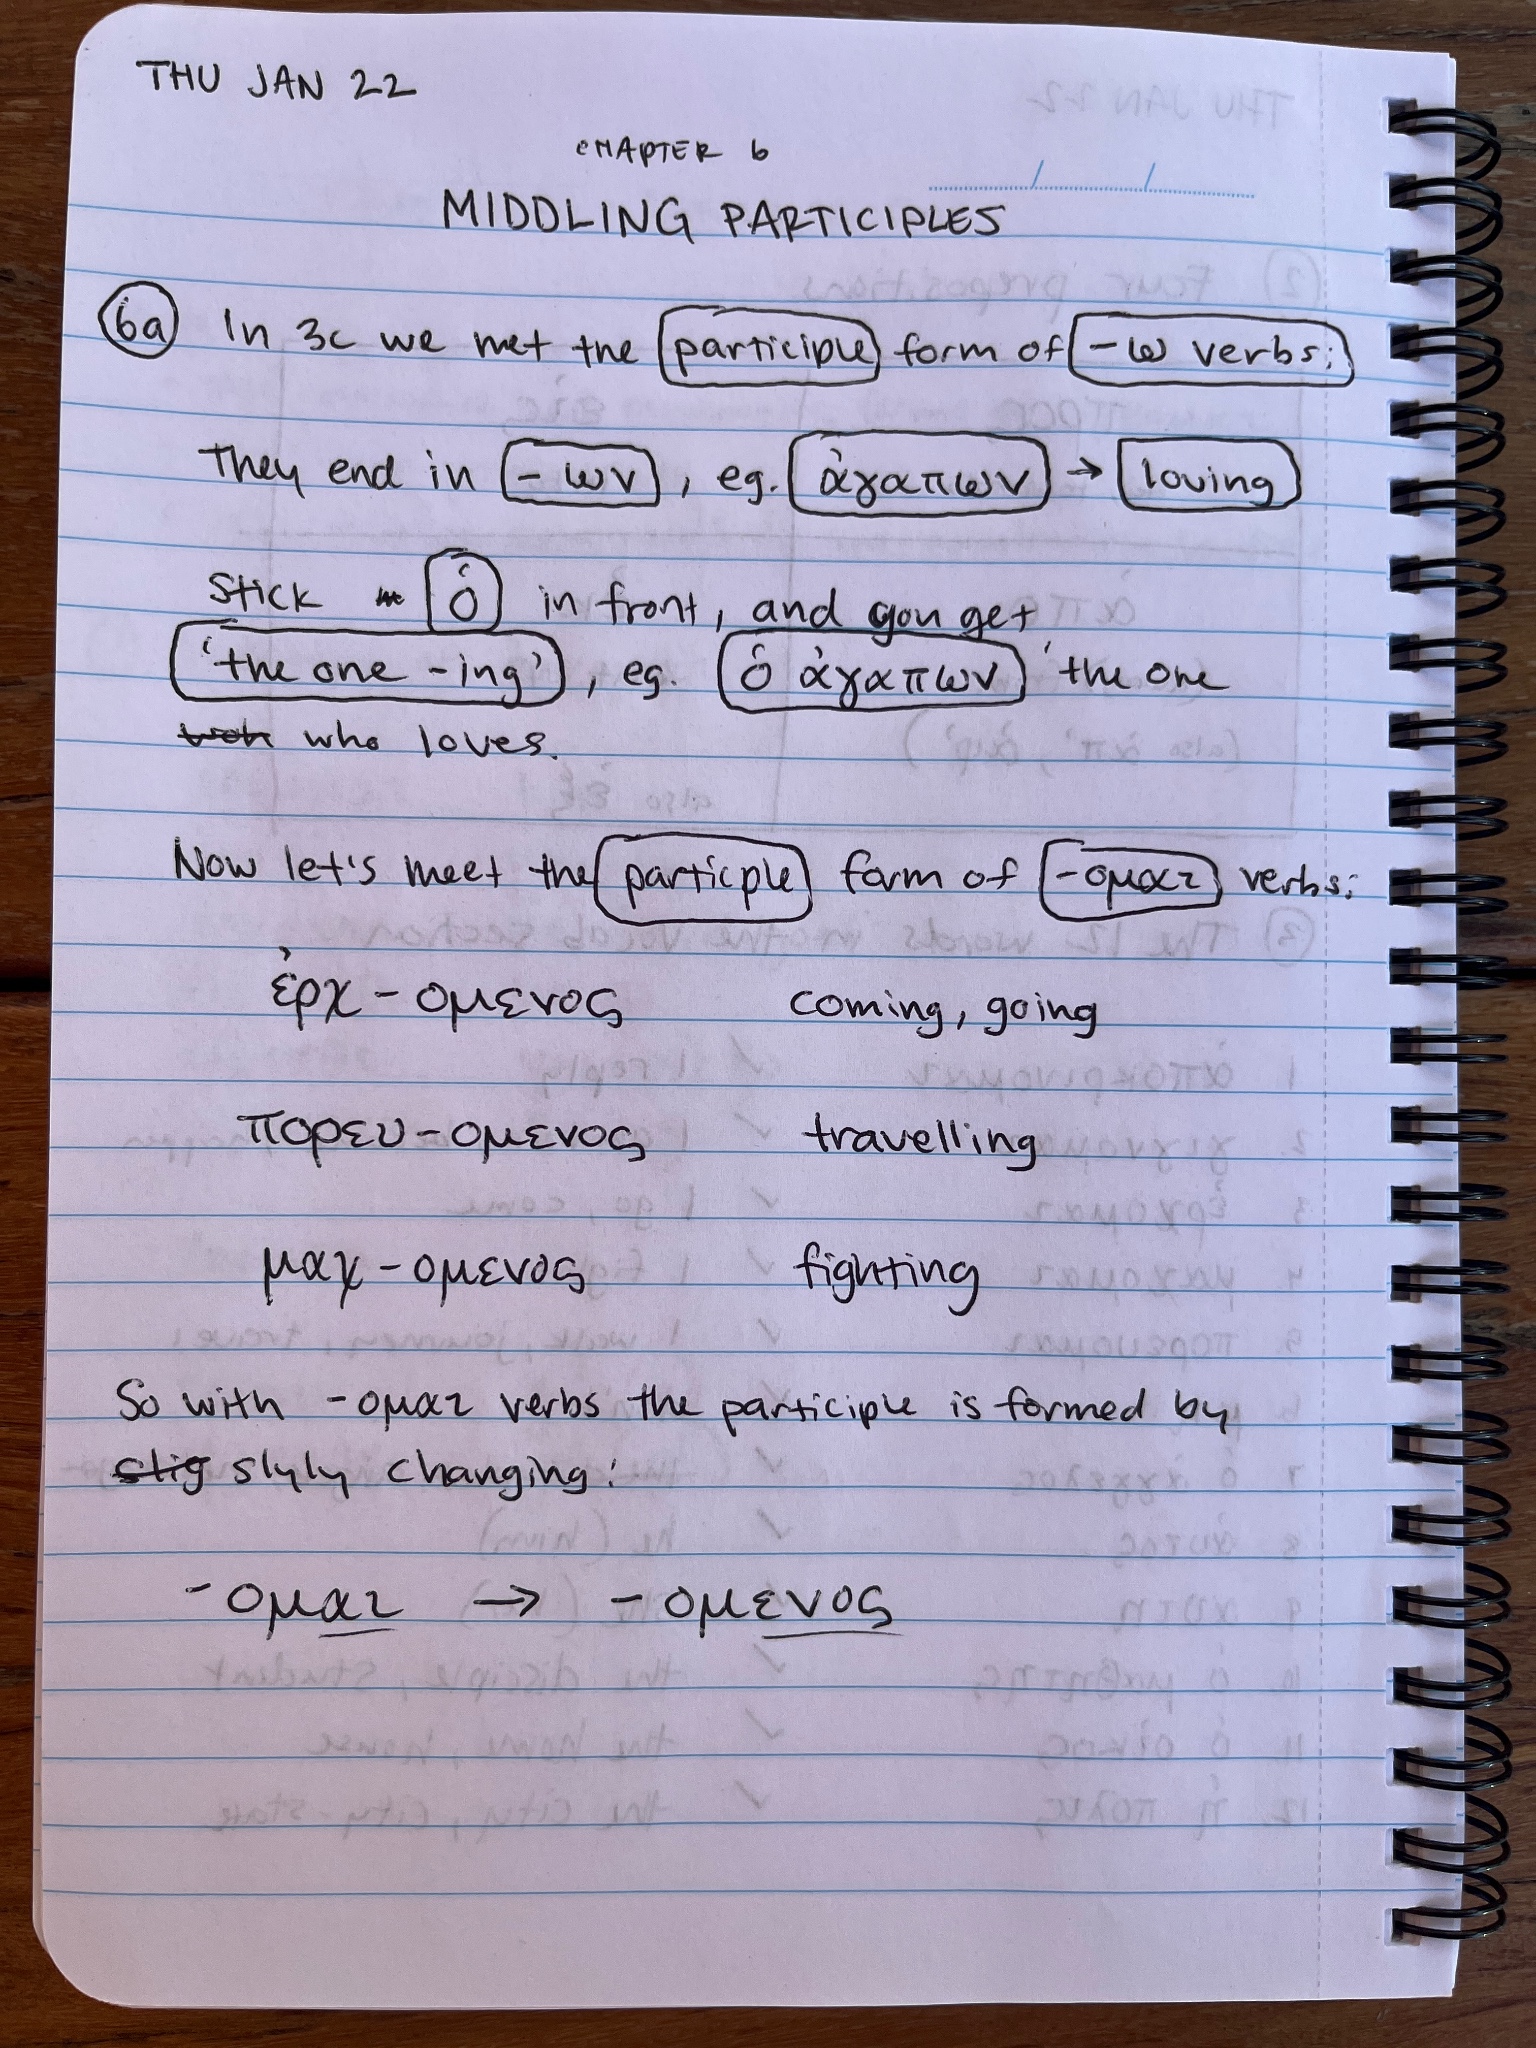 THU JAN 22
CHAPTER 6
MIDDLING PARTICIPLES
6a In 3c we met the participle form of -ω verbs:
They end in -ων, eg. ἀγαπων → loving
Stick ὁ in front, and you get
'the one -ing', eg. ὁ ἀγαπων 'the one
who loves.
Now let's meet the particple form of -ομαι verbs:
ἐρχ-ομενος coming, going
πορευ-ομενος travelling
μαχ-ομενος fighting
So with -ομαι verbs the participle is formed by
slyly changing:
-ομαι → -ομενος